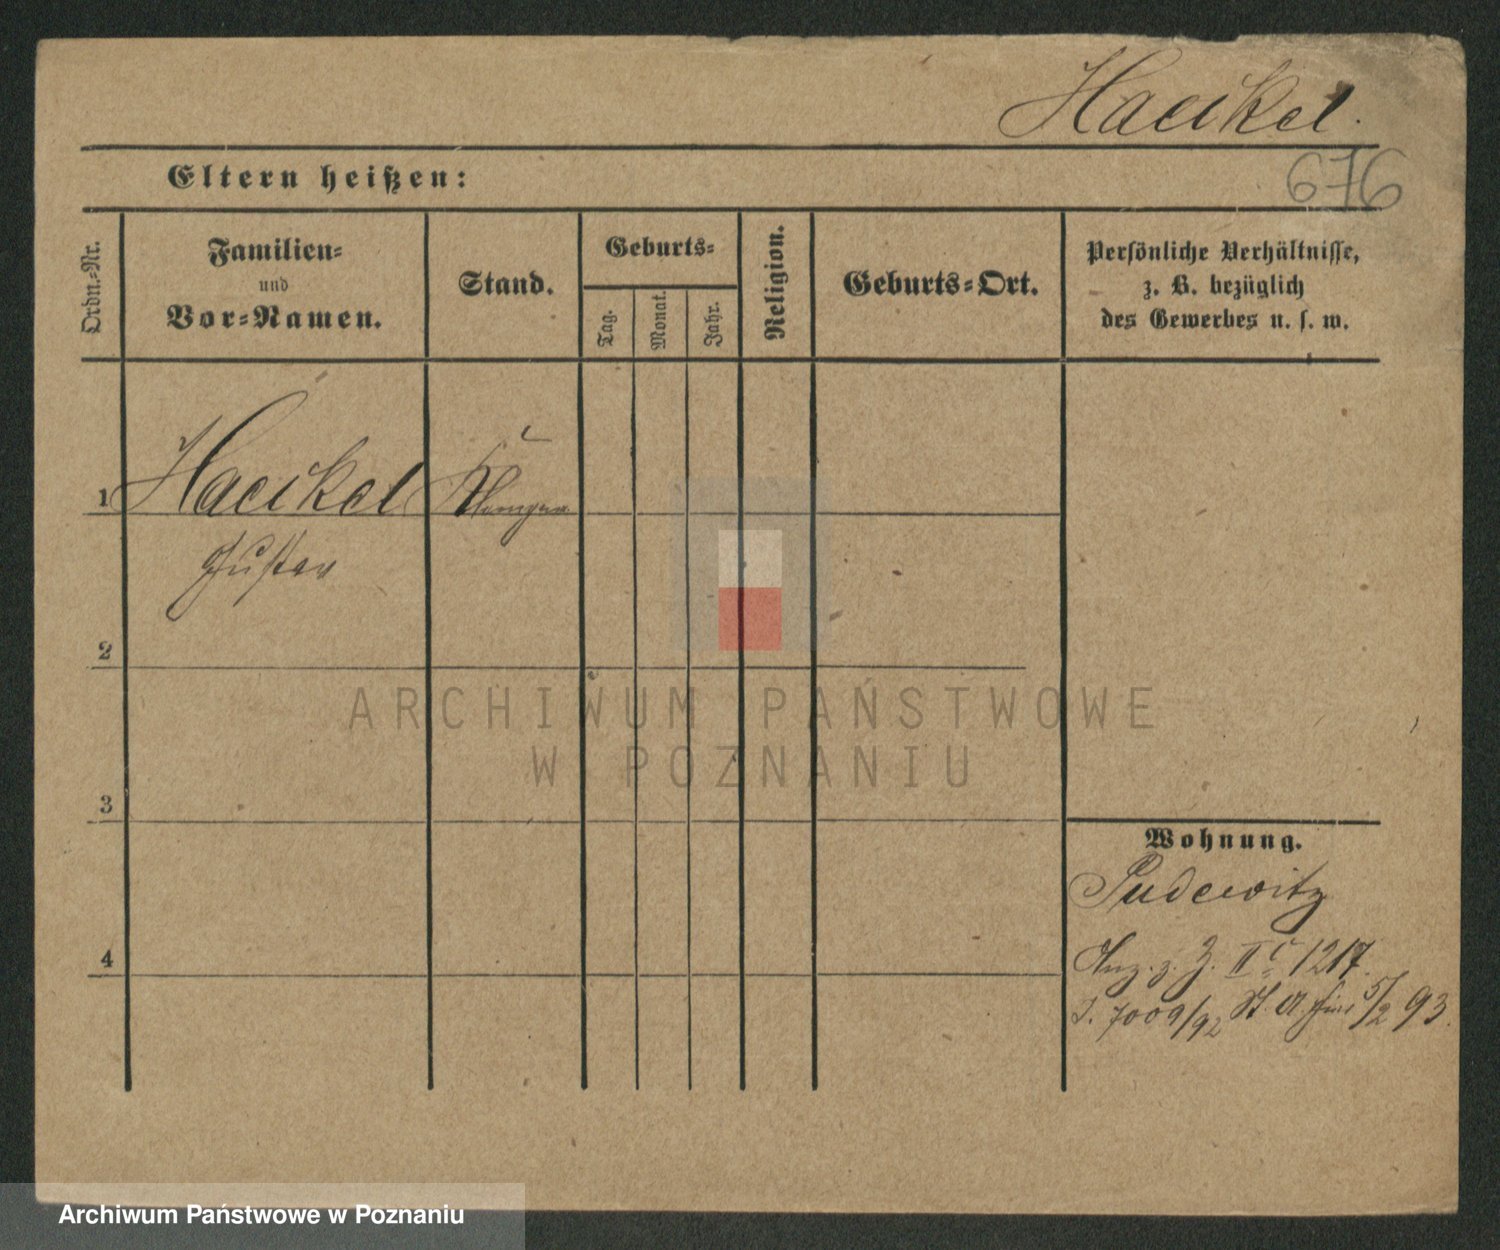 Haeckel.
676
Eltern heißen:
Ordn.=Nr.
Familien=
und
Vor=Namen.
Stand.
Geburts=
Tag.
Monat.
Jahr.
Religion.
Geburts=Ort.
Persönliche Verhältnisse,
z. B. bezüglich
des Gewerbes u. s. w.
1 Haeckel
Gustav
2
3
4
Wohnung.
Pudewitz
Anz. z. Z. II 1217.
J. 7009/92 St. A. 5/2 93.
ARCHIWUM PAŃSTWOWE
W POZNANIU
Archiwum Państwowe w Poznaniu